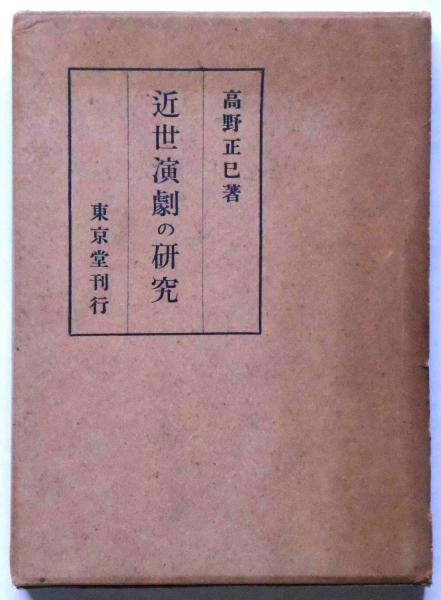 高野正巳著
近世演劇の研究
東京堂刊行